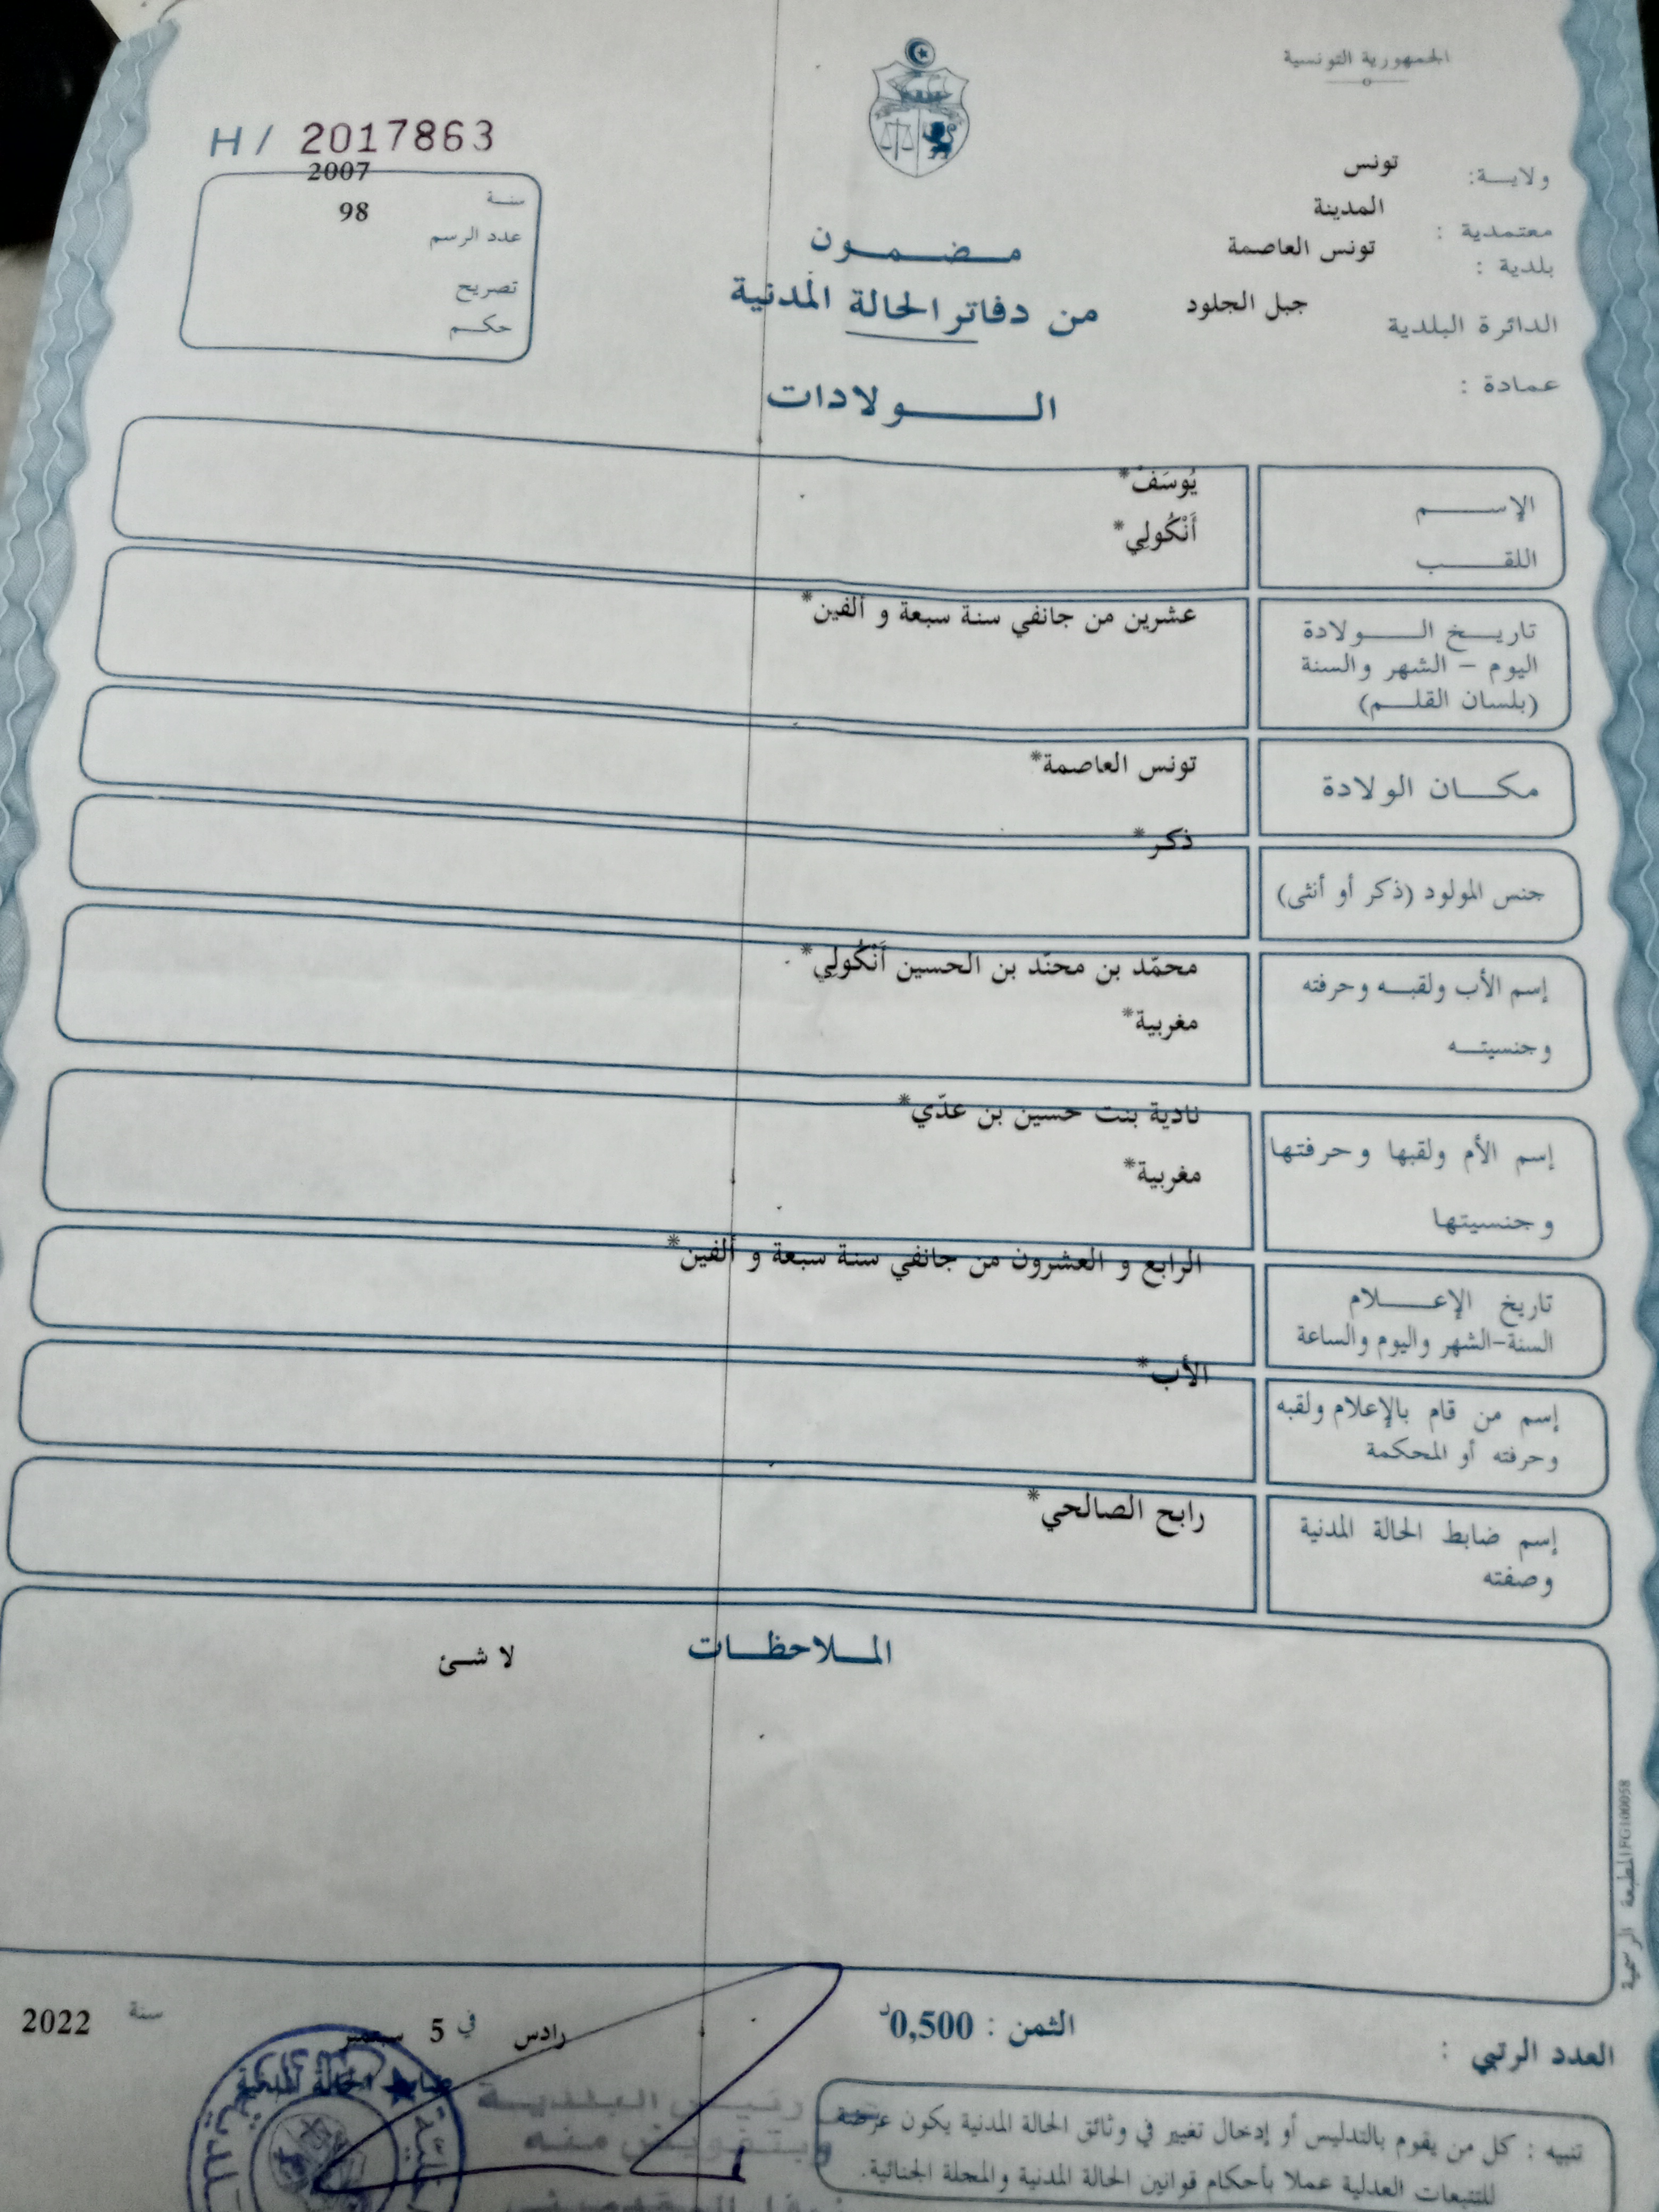 الجمهورية التونسية
ولاية: تونس
معتمدية : المدينة
بلدية : تونس العاصمة
الدائرة البلدية جبل الجلود
عمادة :
مضمون
من دفاتر الحالة المدنية
الولادات
H/ 2017863
سنة 2007
عدد الرسم 98
تصريح
حكم
الإسم يُوسَفْ*
اللقب أَنْكُولِي*
تاريخ الولادة عشرين من جانفي سنة سبعة و ألفين*
اليوم - الشهر والسنة
(بلسان القلم)
مكان الولادة تونس العاصمة*
جنس المولود (ذكر أو أنثى) ذكر*
إسم الأب ولقبه وحرفته محمّد بن محنّد بن الحسين أَنْكُولِي*
وجنسيته مغربية*
إسم الأم ولقبها وحرفتها نادية بنت حسين بن عدّي*
وجنسيتها مغربية*
تاريخ الإعلام الرابع و العشرون من جانفي سنة سبعة و ألفين*
السنة-الشهر واليوم والساعة
إسم من قام بالإعلام ولقبه الأب*
وحرفته أو المحكمة
إسم ضابط الحالة المدنية رابح الصالحي*
وصفته
الملاحظات لا شئ
المطبعة الرسمية FG100058
العدد الرتبي :
الثمن : 0,500د
رادس في 5 سبتمبر سنة 2022
ضابط الحالة المدنية
عن رئيس البلدية
وبتفويض منه
تنبيه : كل من يقوم بالتدليس أو إدخال تغيير في وثائق الحالة المدنية يكون عرضة
للتتبعات العدلية عملا بأحكام قوانين الحالة المدنية والمجلة الجنائية.